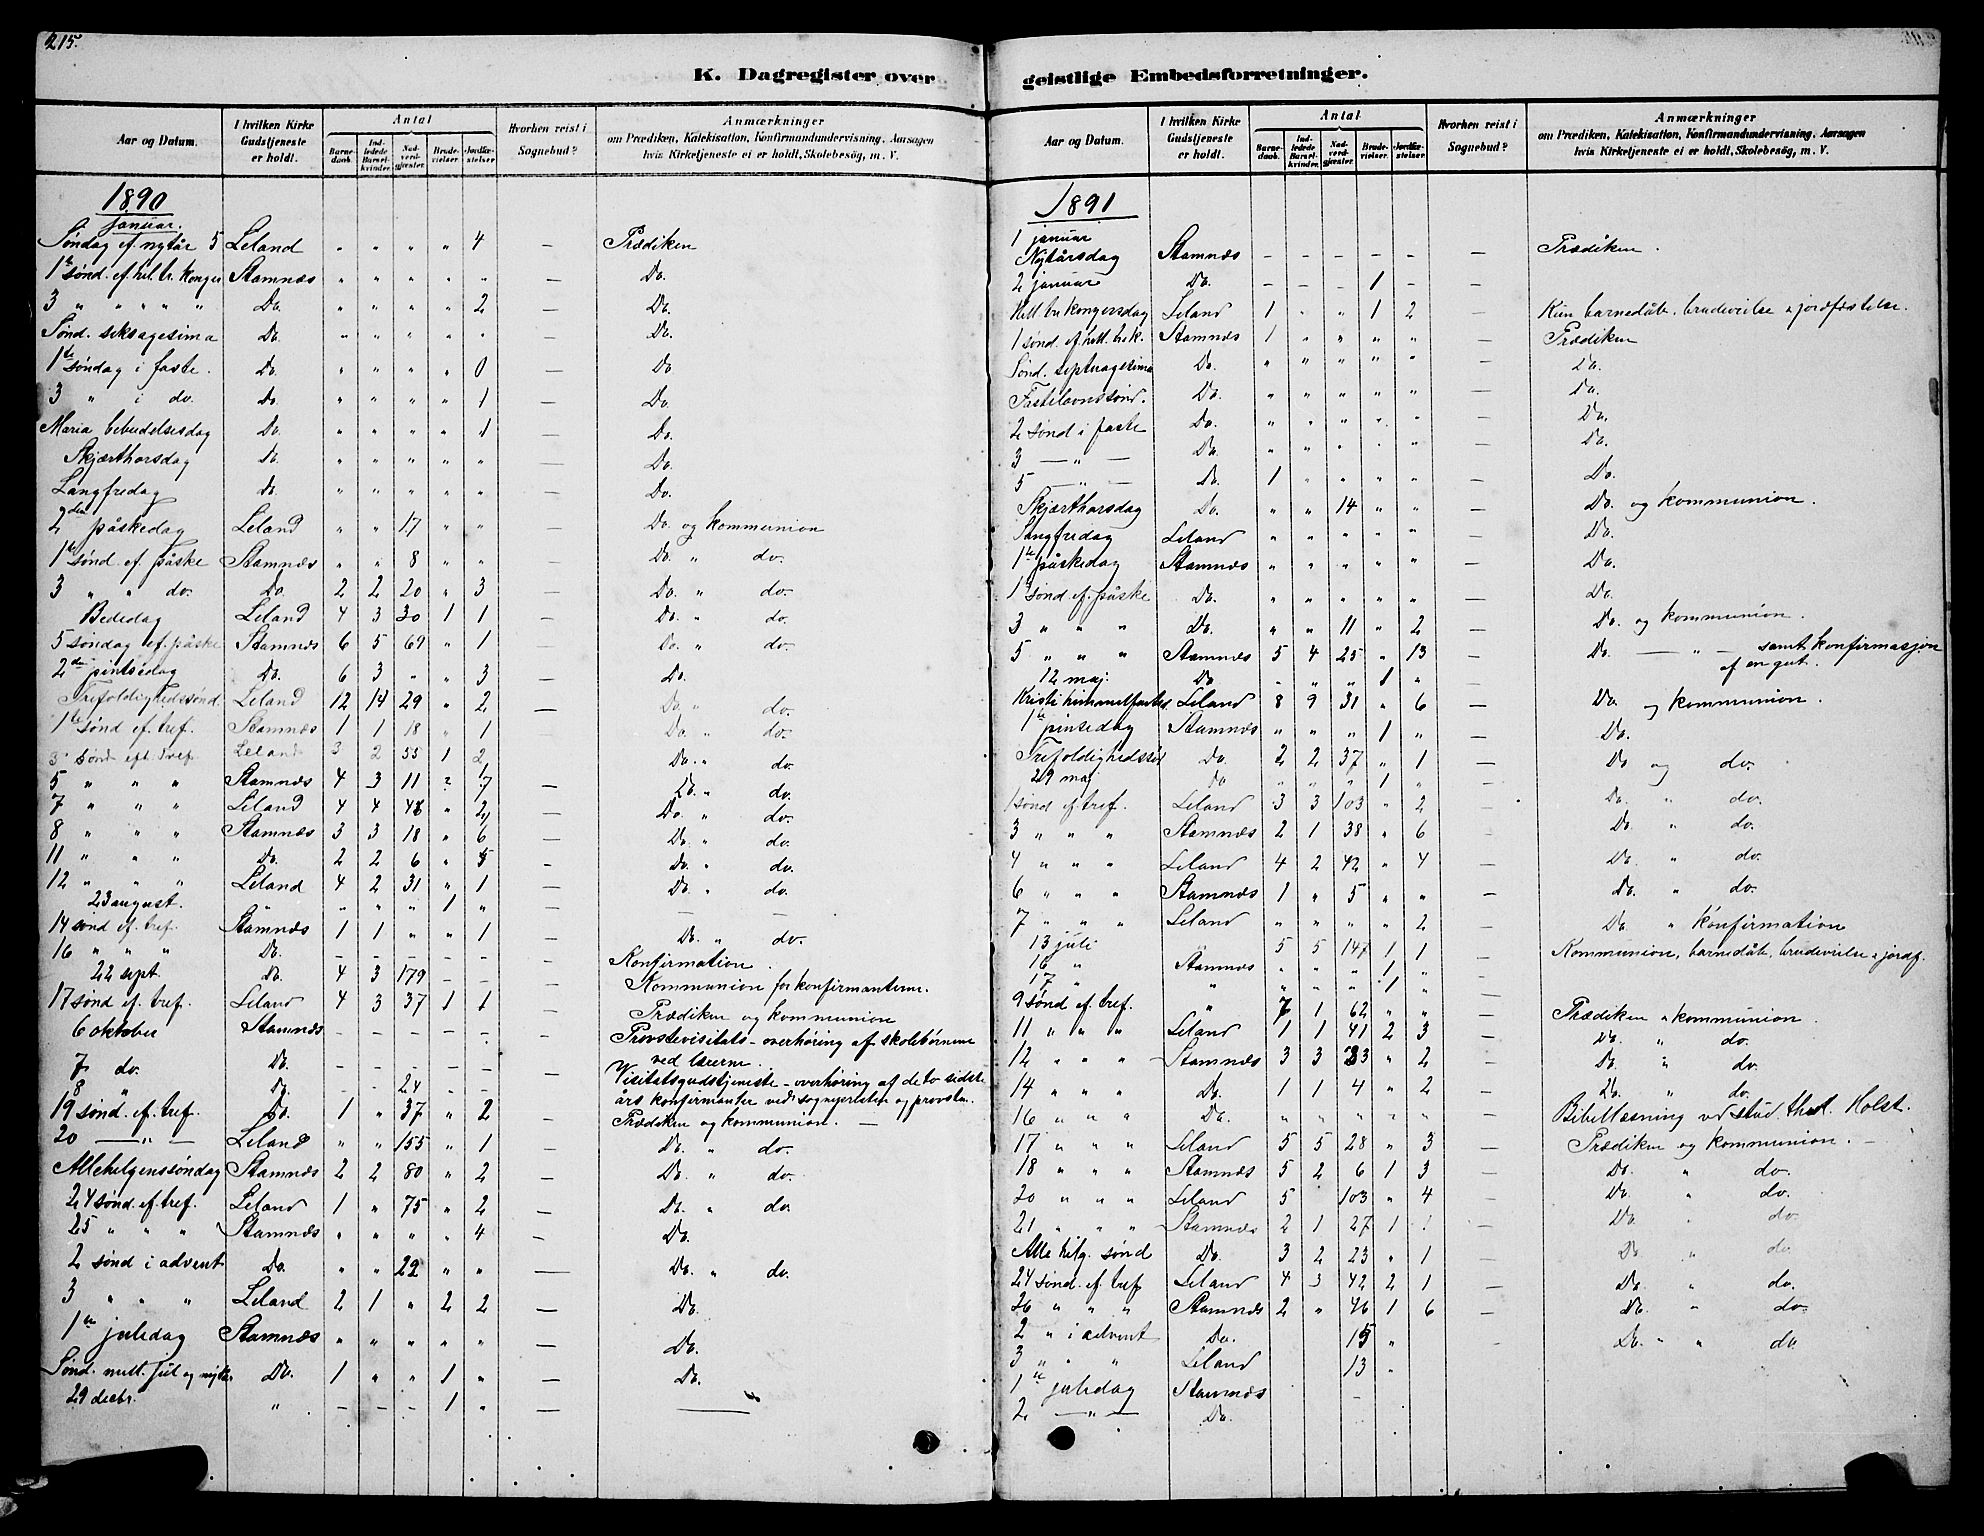 215.
K. Dagregister over
Aar og Datum. I hvilken Kirke Gudstjeneste er holdt. Antal Barnedaab. Indledede Barselkvinder. Nadverdgjester. Brudevielser. Jordfæstelser. Hvorhen reist i Sognebud? Anmærkninger om Prædiken, Katekisation, Konfirmandundervisning, Aarsagen hvis Kirketjeneste ei er holdt, Skolebesög, m. V.
1890
Januar.
Søndag ef. nytår 5 Leland " " " " 4 — Prædiken
1ste sønd. ef. hel. tr. konger Stamnæs " " " " " — Do.
3 " " " " " Do. " " " " 2 — Do.
Sønd. seksagesima Do. " " " " " — Do.
1ste søndag i faste. Do. " " " " 0 — Do.
3 " i do. Do. " " " " 1 — Do.
Maria bebudelsesdag Do. " " " " 1 — Do.
Skjærthorsdag Do. " " " " " — Do.
Langfredag Do. " " " " " — Do.
2den påskedag Leland " " 17 " " — Do. og kommunion
1ste sønd. ef. påske Stamnæs " " 8 " " — Do. " do.
3 " " do. Do. 2 2 20 " 3 — Do. " do.
Bededag Leland 4 3 30 1 1 — Do. " do.
5 søndag ef. påske Stamnæs 6 5 69 " 1 — Do. " do.
2de pintsedag Do. 6 3 " " 3 — Do.
Trefoldighedssønd. Leland 12 14 29 " 2 — Do. " do.
1ste sønd ef. tref. Stamnæs 1 1 18 " 1 Do. " do.
3 sønd eft. tref. Leland 3 2 55 1 2 Do. " do.
5 " " " Stamnæs 4 3 11 2 7 — Do. " do.
7 " " " Leland 4 4 48 " 2 — Do. " do.
8 " " " Stamnæs 3 3 18 " 6 — Do. " do.
11 " " " Do. 2 2 6 " 5 — Do. " do.
12 " " " Leland 4 2 31 " 1 — Do. " do.
23 august. " " " 1 " — — —
14 sønd ef. tref. Stamnæs 1 1 " " 1 — Do. " do.
16 " " " Do. — — — — — — Konfirmation.
22 sept. Do. 4 3 179 — — — Kommunion for konfirmanterne.
17 sønd ef. tref. Leland 4 3 37 1 1 — Prædiken og kommunion
6 oktober Stamnæs — — — — — — Provstevisitats - overhøring af skolebørnene
ved lærerne.
7 do. Do. — — — — — — Visitatsgudstjeneste - overhøring af de to sidste
8 " Do. — — 24 — — års konfirmanter ved sognepresten og provsten.
19 sønd. ef. tref. Do. 1 " 37 " 2 — Prædiken og kommunion. —
20 — " — Leland " " 155 " 1 — Do. " do.
Allehelgenssøndag Stamnæs 2 2 80 " 2 — Do. " do.
24 sønd ef. tref. Leland 1 " 75 " 2 — Do. " do.
25 " " " Stamnæs " " " " 4 — Do.
2 sønd i advent Do. " " 22 " " — Do. " do.
3 " " " Leland 2 1 " 2 2 — Do.
1ste juledag Stamnæs " " " " " — Do.
Sønd. mell. jul og nytår Do. 1 " " 1 " — Do.
29 decbr. " — — — 1 " — —
geistlige Embedsforretninger.
Aar og Datum. I hvilken Kirke Gudstjeneste er holdt. Antal Barnedaab. Indledede Barselkvinder. Nadverdgjester. Brudevielser. Jordfæstelser. Hvorhen reist i Sognebud? Anmærkninger om Prædiken, Katekisation, Konfirmandundervisning, Aarsagen hvis Kirketjeneste ei er holdt, Skolebesög, m. V.
1891
1 januar
Nytårsdag Stamnæs — — — — — — Prædiken.
2 januar Do. — — — 1 — —
Hell. tre kongersdag Leland 1 " " 1 2 — Kun barnedåb, brudevielse & jordfæstelse.
1 sønd. ef. hell. tre k. Stamnæs 1 " " " " — Prædiken
Sønd. septuagesima Do. " " " " " — Do.
Fastelavnssønd. Do. " " " " " — Do.
2 sønd i faste Do. " " " " " — Do.
3 — " — Do. " " " " " — Do.
5 — " — Do. 1 " " " " — Do.
Skjærthorsdag Do. " " 14 " " — Do. og kommunion.
Langfredag Leland " " " " " — Do.
1ste påskedag Stamnæs " " " " " — Do.
1 sønd ef. påske Do. " " " " " — Do.
3 " " " Do. " " 11 " 2 — Do. og kommunion.
5 " " " Stamnæs 5 4 25 " 13 — Do. — " — samt konfirmasjon
af en gut.
12 maj Do. " " " 1 "
Kristi himmelfartsd. Leland 8 9 31 " 6 — Do. og kommunion.
1ste pinsedag Stamnæs " " " 1 " — Do.
Trefoldighedssø Do. 2 2 37 " 1 — Do og do.
29 maj Do " " " 1 "
1 sønd ef tref. Leland 3 3 103 " 2 — Do. " do.
3 " " " Stamnæs 2 1 38 " 6 — Do. " do.
4 " " " Leland 4 2 42 " 4 — Do. " do.
6 " " " Stamnæs 1 " 5 " " — Do. " do.
7 " " " Leland " " " " 2 — Do. " Konfirmation
13 juli " 5 5 147 1 1 — Kommunion, barnedåb, brudevielse & jordf.
16 " Stamnæs " " " 1 "
17 " " " " " 1 "
9 sønd ef. tref. " 7 1 62 " " — Prædiken & kommunion.
11 " " " Leland 1 1 41 2 3 — Do. " do.
12 " " " Stamnæs 3 3 33 " 2 — Do. " do.
14 " " " Do. 1 1 4 " 2 — Do. " do.
16 " " " Do. " " " " " — Bibellæsning ved stud. theol. Holst.
17 " " " Leland 5 5 28 " 3 — Prædiken og kommunion. —
18 " " " Stamnæs 5 2 6 1 3 — Do. " do.
20 " " " Leland 5 103 " 4 — Do. " do.
21 " " " Stamnæs 2 1 27 1 1 — Do. " do.
Alle helg. sønd Do. 3 2 23 " 1 — Do " do.
24 sønd. ef tref Leland 4 3 42 2 1 — Do. " do.
26 " " " Stamnæs 2 " 46 1 6 — Do. " do.
2 " i advent Do. 15 " — Do. " " do.
3 " " " Leland 13 "
1ste juledag Stamnæs —
2 — " — Do.